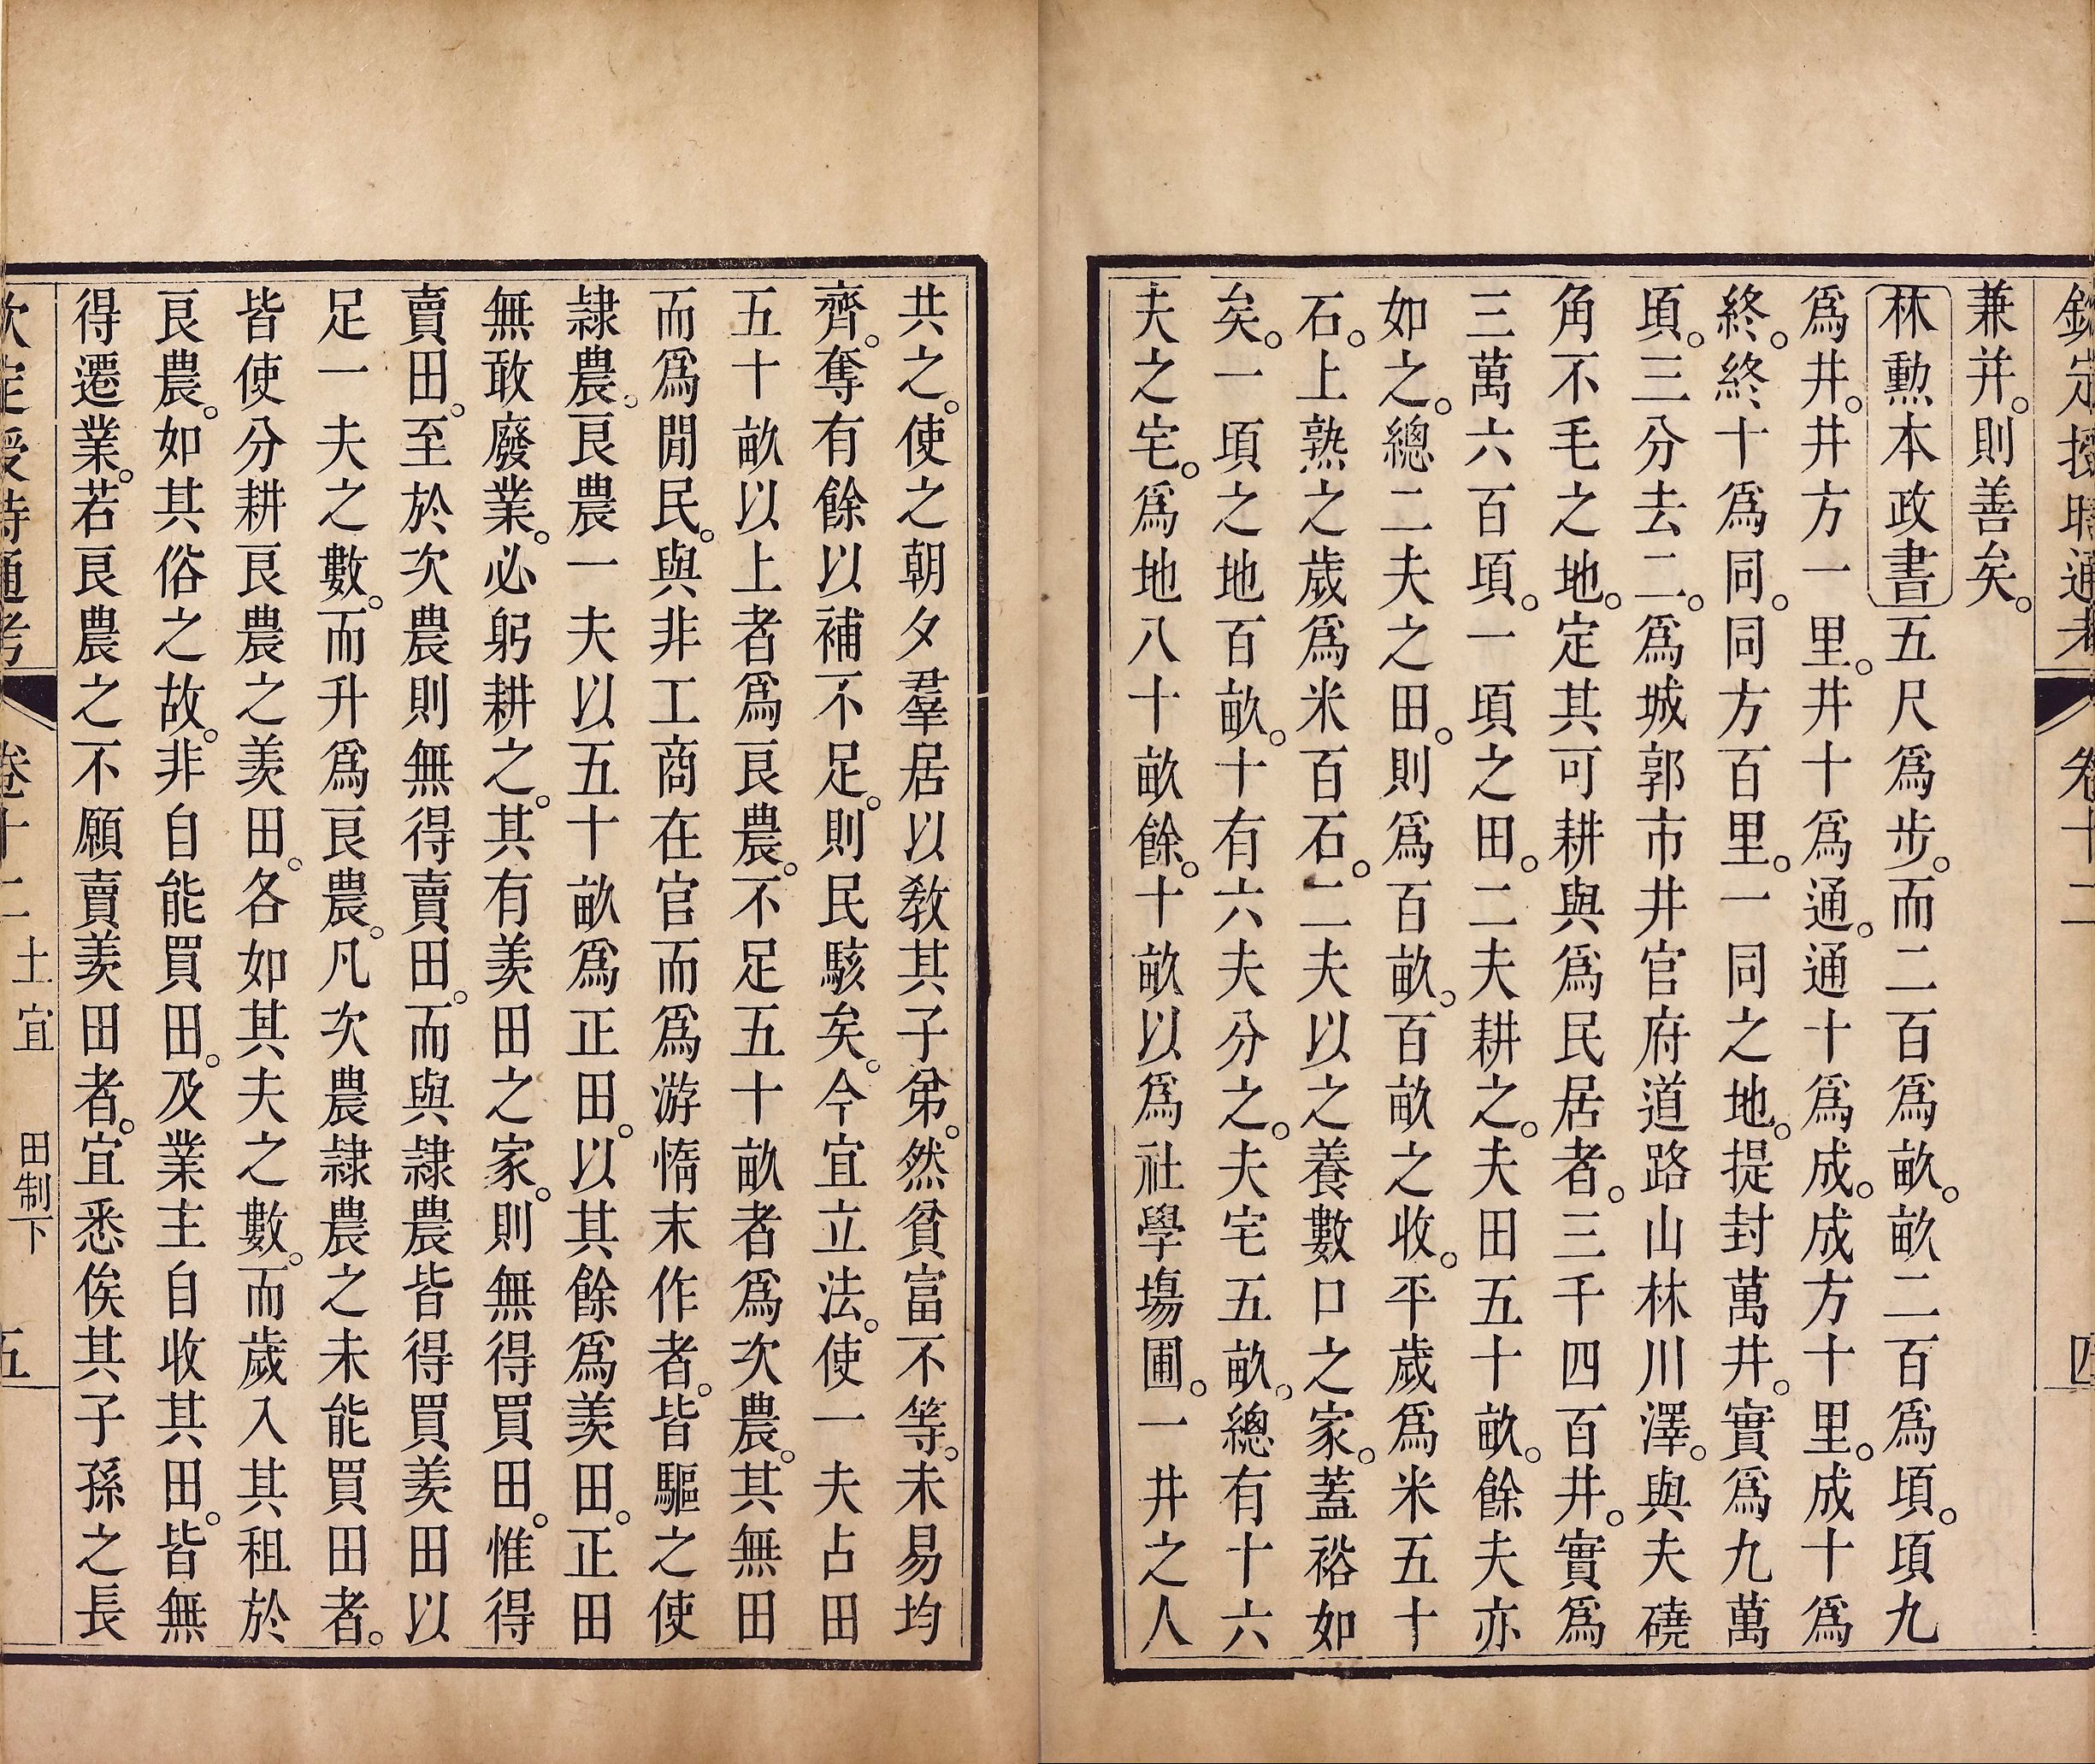 欽定授時通考 卷十二 四
兼并。則善矣。
林勲本政書五尺爲步。而二百爲畝。畝二百爲頃。頃九
爲井。井方一里。井十爲通。通十爲成。成方十里。成十爲
終。終十爲同。同方百里。一同之地。提封萬井。實爲九萬
頃。三分去二。爲城郭市井官府道路山林川澤。與夫磽
角不毛之地。定其可耕與爲民居者。三千四百井。實爲
三萬六百頃。一頃之田。二夫耕之。夫田五十畝。餘夫亦
如之。總二夫之田。則爲百畝。百畝之收。平歲爲米五十
石。上熟之歲爲米百石。二夫以之養數口之家。蓋裕如
矣。一頃之地百畝。十有六夫分之。夫宅五畝。總有十六
夫之宅。爲地八十畝餘。十畝以爲社學塲圃。一井之人
共之。使之朝夕羣居以敎其子弟。然貧富不等。未易均
齊。奪有餘以補不足。則民駭矣。今宜立法。使一夫占田
五十畝以上者爲良農。不足五十畝者爲次農。其無田
而爲閒民。與非工商在官而爲游惰末作者。皆驅之使
隷農。良農一夫以五十畝爲正田。以其餘爲羨田。正田
無敢廢業。必躬耕之。其有羨田之家。則無得買田。惟得
賣田。至於次農則無得賣田。而與隷農皆得買羨田以
足一夫之數。而升爲良農。凡次農隷農之未能買田者。
皆使分耕良農之羨田。各如其夫之數。而歲入其租於
良農。如其俗之故。非自能買田。及業主自收其田。皆無
得遷業。若良農之不願賣羨田者。宜悉俟其子孫之長
欽定授時通考 卷十二 土宜 田制下 五